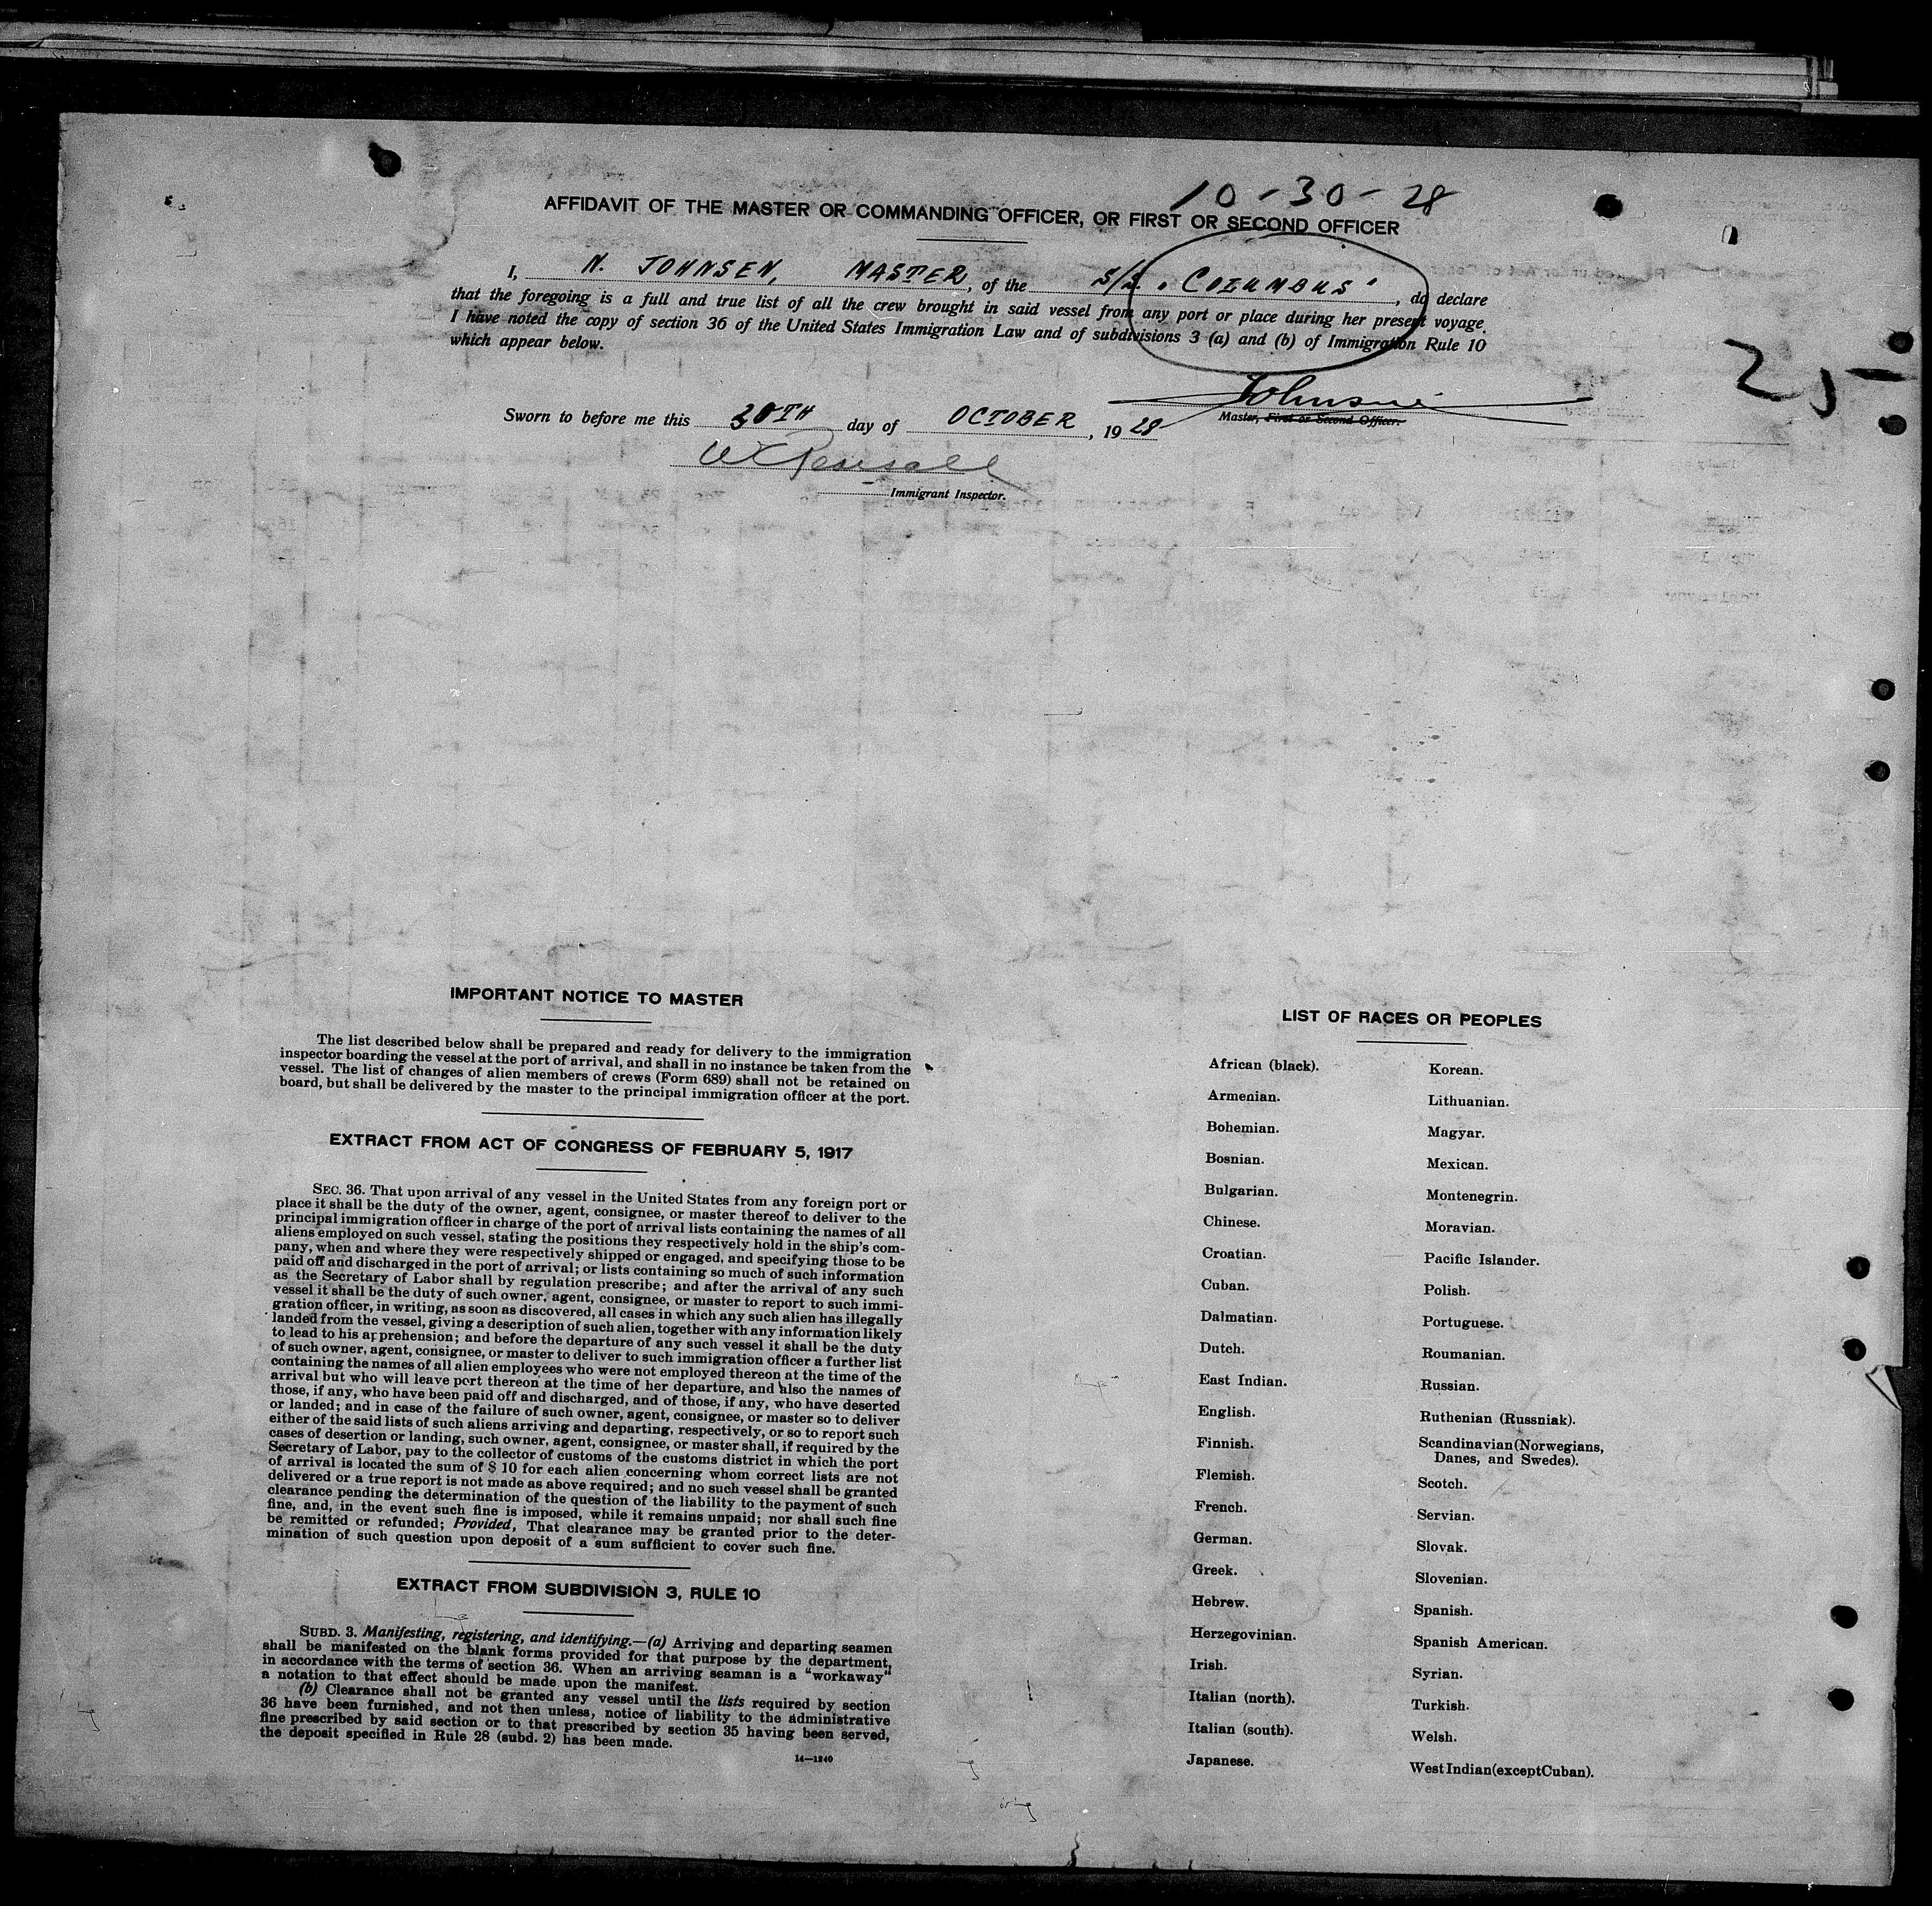 10-30-28
AFFIDAVIT OF THE MASTER OR COMMANDING OFFICER, OR FIRST OR SECOND OFFICER
I, N. JOHNSEN, MASTER, of the S/S. "COLUMBUS", do declare
that the foregoing is a full and true list of all the crew brought in said vessel from any port or place during her present voyage.
I have noted the copy of section 36 of the United States Immigration Law and of subdivisions 3 (a) and (b) of Immigration Rule 10
which appear below.
Johnsen
Master, First or Second Officer.
Sworn to before me this 30TH day of OCTOBER, 1928
Immigrant Inspector.
IMPORTANT NOTICE TO MASTER
The list described below shall be prepared and ready for delivery to the immigration
inspector boarding the vessel at the port of arrival, and shall in no instance be taken from the
vessel. The list of changes of alien members of crews (Form 689) shall not be retained on
board, but shall be delivered by the master to the principal immigration officer at the port.
EXTRACT FROM ACT OF CONGRESS OF FEBRUARY 5, 1917
SEC. 36. That upon arrival of any vessel in the United States from any foreign port or
place it shall be the duty of the owner, agent, consignee, or master thereof to deliver to the
principal immigration officer in charge of the port of arrival lists containing the names of all
aliens employed on such vessel, stating the positions they respectively hold in the ship's com-
pany, when and where they were respectively shipped or engaged, and specifying those to be
paid off and discharged in the port of arrival; or lists containing so much of such information
as the Secretary of Labor shall by regulation prescribe; and after the arrival of any such
vessel it shall be the duty of such owner, agent, consignee, or master to report to such immi-
gration officer, in writing, as soon as discovered, all cases in which any such alien has illegally
landed from the vessel, giving a description of such alien, together with any information likely
to lead to his apprehension; and before the departure of any such vessel it shall be the duty
of such owner, agent, consignee, or master to deliver to such immigration officer a further list
containing the names of all alien employees who were not employed thereon at the time of the
arrival but who will leave port thereon at the time of her departure, and also the names of
those, if any, who have been paid off and discharged, and of those, if any, who have deserted
or landed; and in case of the failure of such owner, agent, consignee, or master so to deliver
either of the said lists of such aliens arriving and departing, respectively, or so to report such
cases of desertion or landing, such owner, agent, consignee, or master shall, if required by the
Secretary of Labor, pay to the collector of customs of the customs district in which the port
of arrival is located the sum of $ 10 for each alien concerning whom correct lists are not
delivered or a true report is not made as above required; and no such vessel shall be granted
clearance pending the determination of the question of the liability to the payment of such
fine, and, in the event such fine is imposed, while it remains unpaid; nor shall such fine
be remitted or refunded; Provided, That clearance may be granted prior to the deter-
mination of such question upon deposit of a sum sufficient to cover such fine.
EXTRACT FROM SUBDIVISION 3, RULE 10
SUBD. 3. Manifesting, registering, and identifying.—(a) Arriving and departing seamen
shall be manifested on the blank forms provided for that purpose by the department,
in accordance with the terms of section 36. When an arriving seaman is a "workaway"
a notation to that effect should be made upon the manifest.
(b) Clearance shall not be granted any vessel until the lists required by section
36 have been furnished, and not then unless, notice of liability to the administrative
fine prescribed by said section or to that prescribed by section 35 having been served,
the deposit specified in Rule 28 (subd. 2) has been made.
14—1240
LIST OF RACES OR PEOPLES
African (black).
Armenian.
Bohemian.
Bosnian.
Bulgarian.
Chinese.
Croatian.
Cuban.
Dalmatian.
Dutch.
East Indian.
English.
Finnish.
Flemish.
French.
German.
Greek.
Hebrew.
Herzegovinian.
Irish.
Italian (north).
Italian (south).
Japanese.
Korean.
Lithuanian.
Magyar.
Mexican.
Montenegrin.
Moravian.
Pacific Islander.
Polish.
Portuguese.
Roumanian.
Russian.
Ruthenian (Russniak).
Scandinavian (Norwegians,
Danes, and Swedes).
Scotch.
Servian.
Slovak.
Slovenian.
Spanish.
Spanish American.
Syrian.
Turkish.
Welsh.
West Indian (except Cuban).